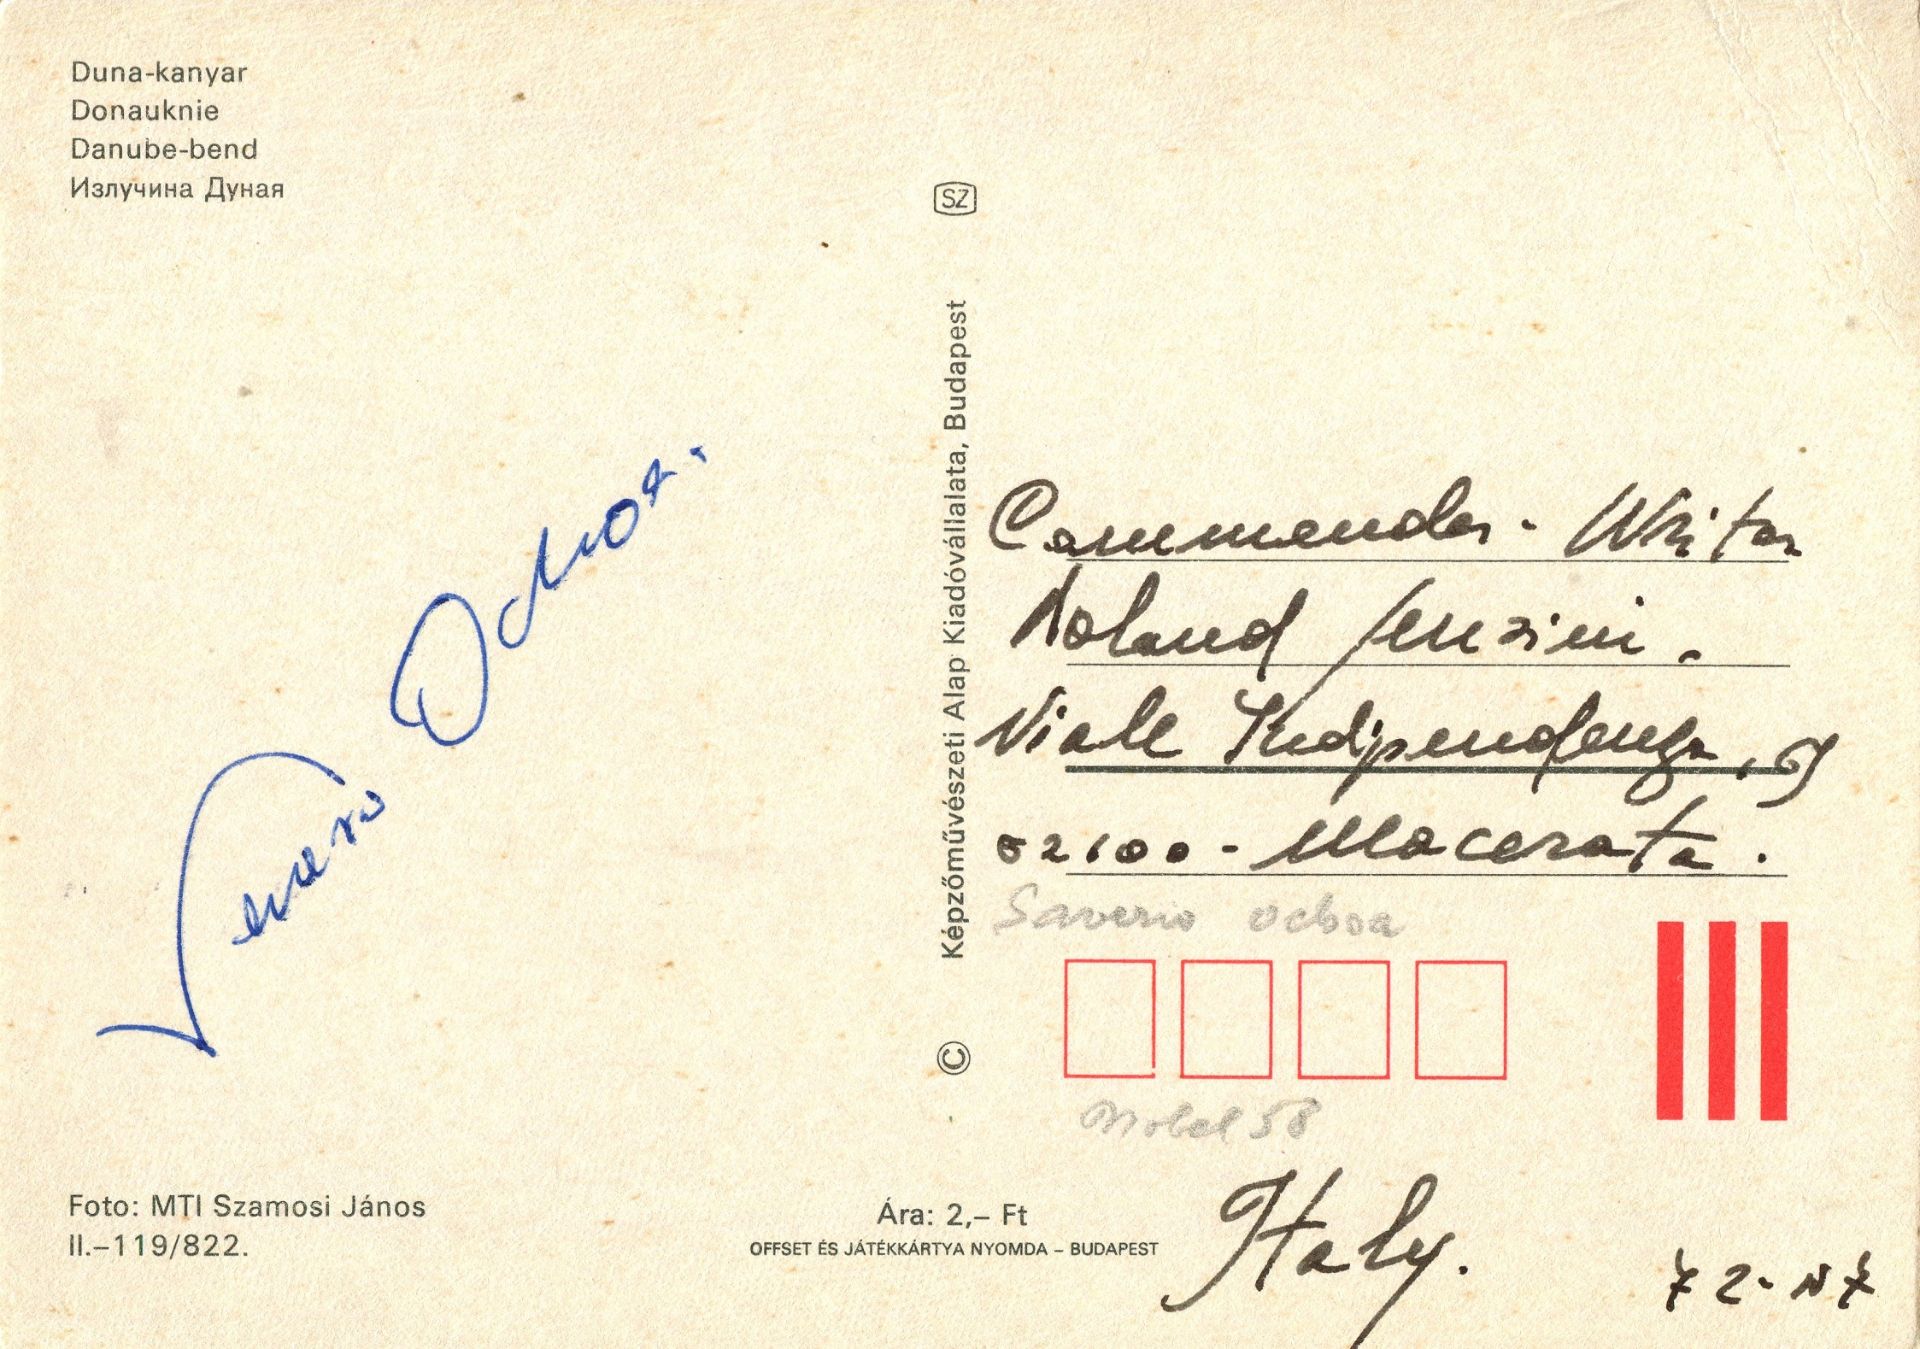 Duna-kanyar
Donauknie
Danube-bend
Излучина Дуная
SZ
Képzőművészeti Alap Kiadóvállalata, Budapest
©
Severo Ochoa.
Commander - Writer
Roland Jenzini.
Viale Indipendenza, 9
62100 - Macerata.
Saverio ochoa
Nobel 58
Italy.
Foto: MTI Szamosi János
II.–119/822.
Ára: 2,– Ft
OFFSET ÉS JÁTÉKKÁRTYA NYOMDA – BUDAPEST